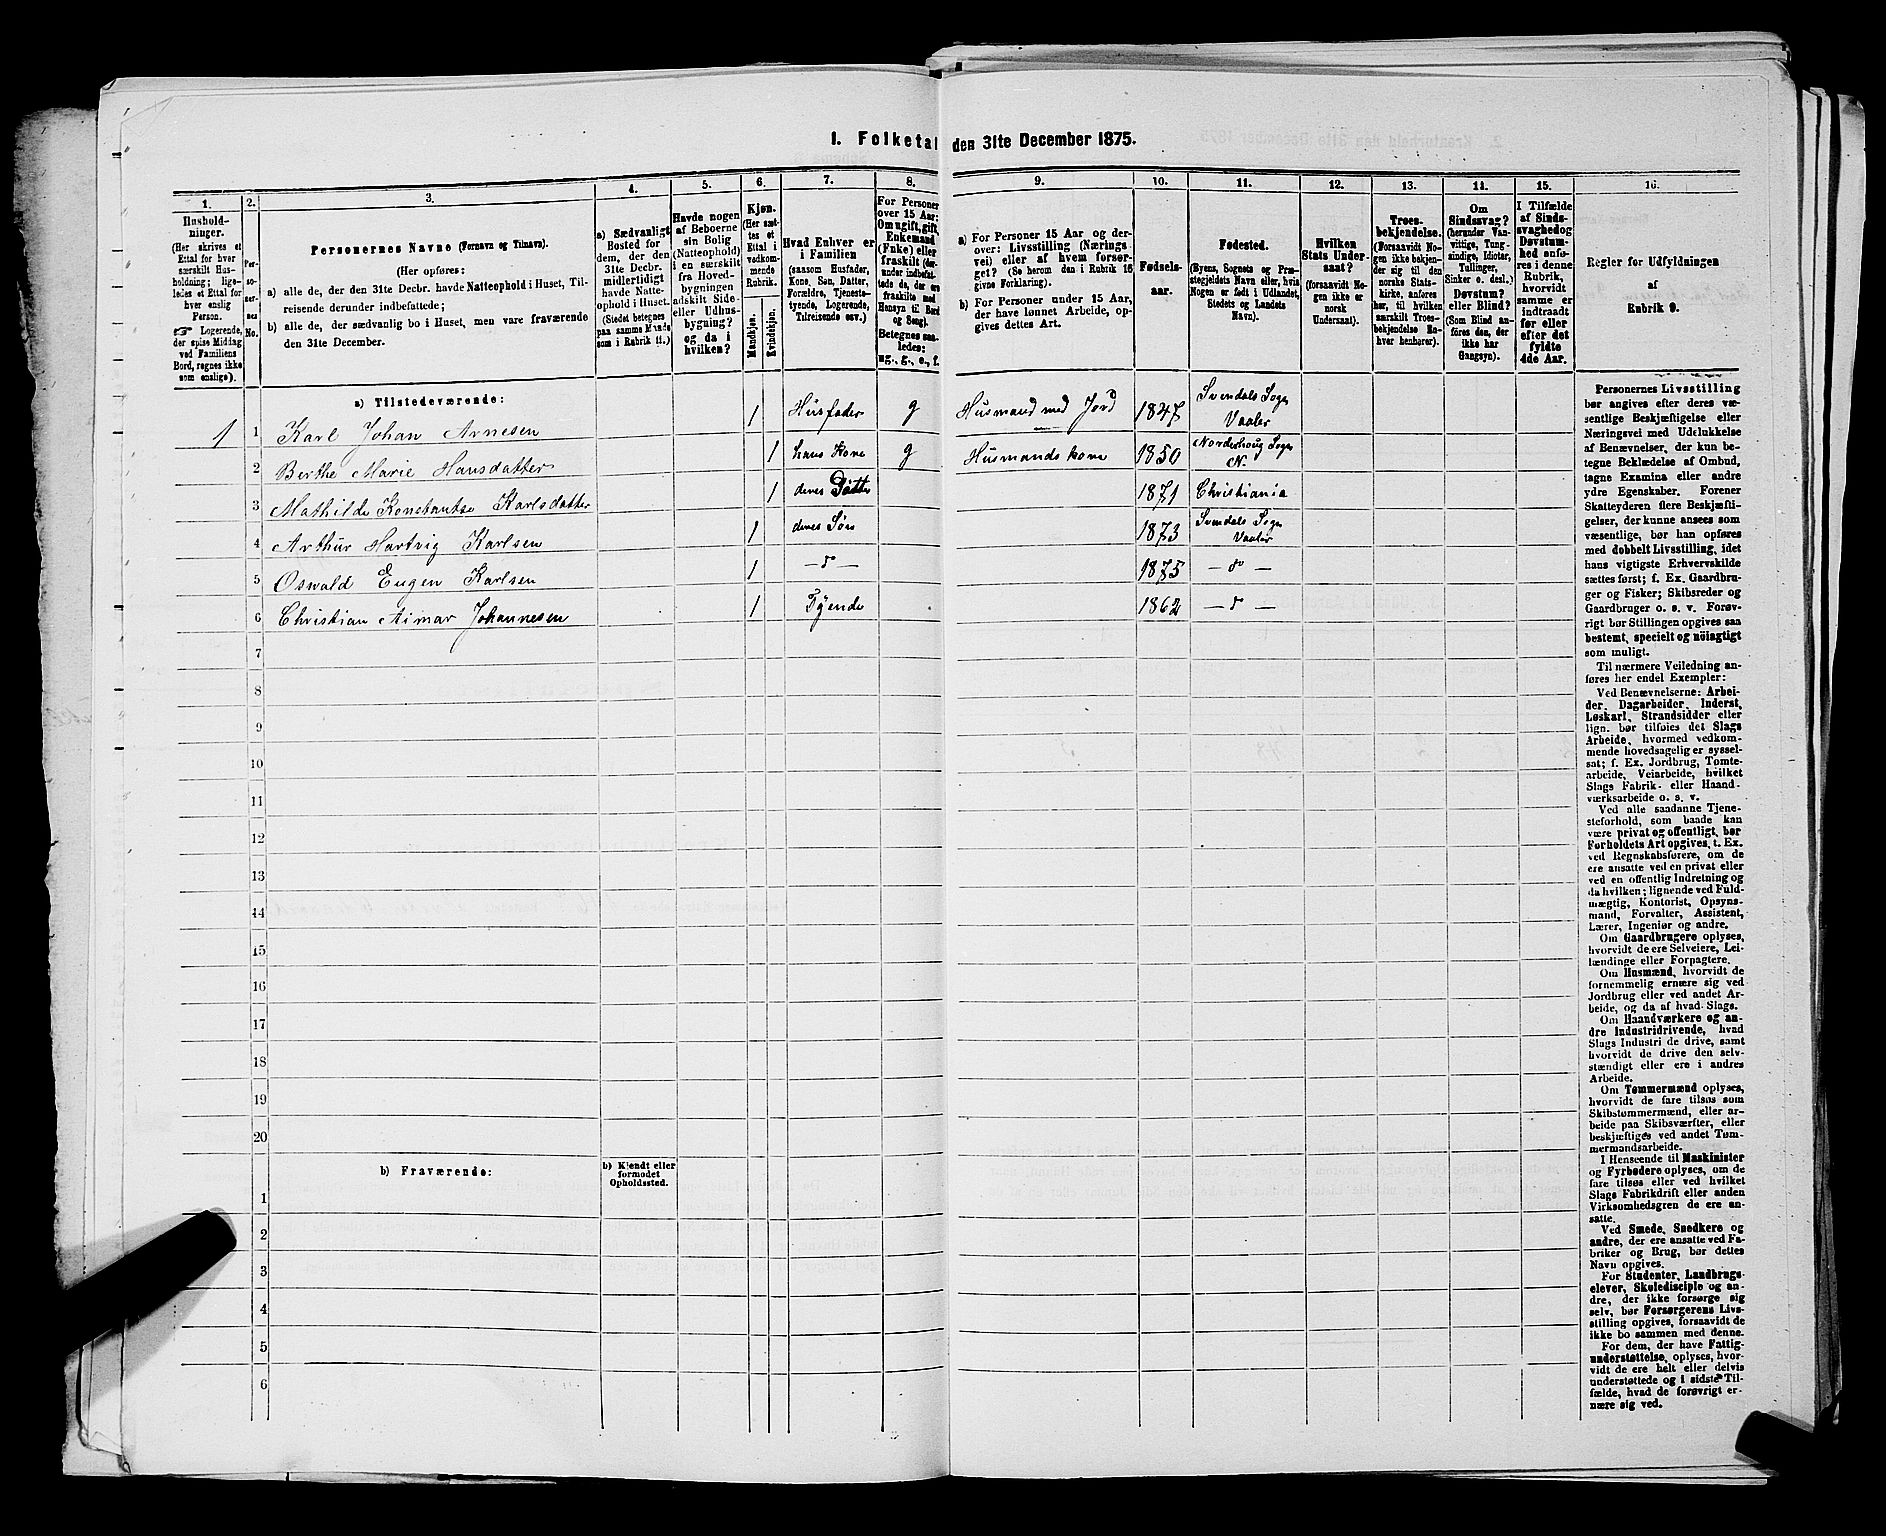 1. Folketal den 31te December 1875.
1.
Hushold-
ninger.
(Her skrives et
Ettal for hver
særskilt Hus-
holdning; lige-
ledes et Ettal for
hver enslig
Person.
☞ Logerende,
der spise Middag
ved Familiens
Bord, regnes ikke
som enslige).
2.
Per-
so-
ner-
nes
No.
3.
Personernes Navne (Fornavn og Tilnavn).
(Her opføres:
a) alle de, der den 31te Decbr. havde Natteophold i Huset, Til-
reisende derunder indbefattede;
b) alle de, der sædvanlig bo i Huset, men vare fraværende
den 31te December.
4.
a) Sædvanligt
Bosted for
dem, der den
31te Decbr.
midlertidigt
havde Natte-
ophold i Huset.
(Stedet betegnes
paa samme Maade
som i Rubrik 11.)
5.
Havde nogen
af Beboerne
sin Bolig
(Natteophold)
i en særskilt
fra Hoved-
bygningen
adskilt Side-
eller Udhus-
bygning?
og da i
hvilken?
6.
Kjøn.
(Her sæt-
tes et
Ettal i
vedkom-
mende
Rubrik.
Mandkjøn.
Kvindekjøn.
7.
Hvad Enhver er
i Familien
(saasom Husfader,
Kone, Søn, Datter,
Forældre, Tjeneste-
tyende, Logerende,
Tilreisende osv.)
8.
For Personer
over 15 Aar:
Om ugift, gift,
Enkemand
(Enke) eller
fraskilt (der-
under indbefat-
tede de, der
ere fraskilte med
Hensyn til Bord
og Seng).
Betegnes saa-
ledes:
ug., g., e., f.
9.
a) For Personer 15 Aar og der-
over: Livsstilling (Nærings-
vei) eller af hvem forsør-
get? (Se herom den i Rubrik 16
givne Forklaring).
b) For Personer under 15 Aar,
der have lønnet Arbeide, op-
gives dettes Art.
10.
Fødsels-
aar.
11.
Fødested.
(Byens, Sognets og Præ-
stegjeldets Navn eller, hvis
Nogen er født i Udlandet,
Stedets og Landets
Navn).
12.
Hvilken
Stats Under-
saat?
(forsaavidt No-
gen ikke er
norsk
Undersaat).
13.
Troes-
bekjendelse.
(Forsaavidt No-
gen ikke bekjen-
der sig til den
norske Stats-
kirke, anføres
her, til hvilken
særskilt Troes-
bekjendelse En-
hver henhører).
14.
Om
Sindssvag?
(herunder Van-
vittige, Tung-
sindige, Idioter,
Tullinger,
Sinker o. desl.)
Døvstum?
eller Blind?
(Som Blind an-
føres den, der
ikke har
Gangsyn).
15.
I Tilfælde
af Sinds-
svaghed og
Døvstum-
hed anfø-
res i denne
Rubrik,
hvorvidt
samme er
indtraadt
før eller
efter det
fyldte
4de Aar.
16.
Regler for Udfyldningen
af
Rubrik 9.
a) Tilstedeværende:
1 1 Karl Johan Arnesen 1 Husfader g Husmand med Jord 1847 Svendals Sogn Vaaler
2 Berthe Marie Hansdatter 1 hans Kone g Husmandskone 1850 Norderhoug Sogn N.
3 Mathilde Konstantse Karlsdatter 1 deres Datter 1871 Christiania
4 Arthur Hartvig Karlsen 1 deres Søn 1873 Svendals Sogn Vaaler
5 Oswald Eugen Karlsen 1 — " — 1875 — " —
6 Christian Aimar Johannesen 1 Tyende 1862 — " —
7
8
9
10
11
12
13
14
15
16
17
18
19
20
b) Fraværende:
b) Kjendt eller
formodet
Opholdssted.
1
2
3
4
5
6
Personernes Livsstilling
bør angives efter deres væ-
sentlige Beskjæftigelse eller
Næringsvei med Udelukkelse
af Benævnelser, der kun be-
tegne Beklædelse af Ombud,
tagne Examina eller andre
ydre Egenskaber. Forener
Skatteyderen flere Beskjæfti-
gelser, der kunne ansees som
væsentlige, bør han opføres
med dobbelt Livsstilling, idet
hans vigtigste Erhvervskilde
sættes først; f. Ex. Gaardbru-
ger og Fisker; Skibsreder og
Gaardbruger o. s. v. Forøv-
rigt bør Stillingen opgives saa
bestemt, specielt og nöiagtigt
som muligt.
Til nærmere Veiledning an-
føres her endel Exempler:
Ved Benævnelserne: Arbei-
der, Dagarbeider, Inderst,
Løskarl, Strandsidder eller
lign. bør tilføies det Slags
Arbeide, hvormed vedkom-
mende hovedsagelig er syssel-
sat; f. Ex. Jordbrug, Tømte-
arbeide, Veiarbeide, hvilket
Slags Fabrik- eller Haand-
værksarbeide o. s. v.
Ved alle saadanne Tjene-
steforhold, som baade kan
være privat og offentligt, bør
Forholdets Art opgives, t. Ex.
ved Regnskabsførere, om de
ere ansatte ved en privat eller
ved en offentlig Indretning og
da hvilken; lignende ved Fuld-
mægtig, Kontorist, Opsyns-
mand, Forvalter, Assistent,
Lærer, Ingeniør og andre.
Om Gaardbrugere oplyses,
hvorvidt de ere Selveiere, Lei-
lændinge eller Forpagtere.
Om Husmænd, hvorvidt de
fornemmelig ernære sig ved
Jordbrug eller ved andet Ar-
beide, og da af hvad Slags.
Om Haandværkere og an-
dre Industridrivende, hvad
Slags Industri de drive, samt
hvorvidt de drive den selv-
stændigt eller ere i andres
Arbeide.
Om Tømmermænd oplyses,
hvorvidt de fare tilsøs som
Skibstømmermænd, eller ar-
beide paa Skibsværfter, eller
beskjæftiges ved andet Tøm-
mermandsarbeide.
I Henseende til Maskinister
og Fyrbødere oplyses, om de
fare tilsøs eller ved hvilket
Slags Fabrikdrift eller anden
Virksomhedsgren de ere an-
satte.
Ved Smede, Snedkere og
andre, der ere ansatte ved Fa-
briker og Brug, bør dettes
Navn opgives.
For Studenter, Landbrugs-
elever, Skoledisciple og an-
dre, der ikke forsørge sig
selv, bør Forsørgerens Livs-
stilling opgives, forsaavidt de
ikke bo sammen med denne.
For dem, der have Fattig-
understøttelse, oplyses, hvor-
vidt de ere helt eller delvis
understøttede og i sidste Til-
fælde, hvad de forøvrigt er-
nære sig ved.